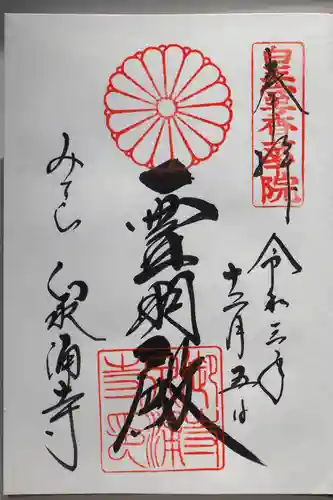 奉拝
皇室香華院
令和三年
十二月五日
霊明殿
みてら
泉涌寺